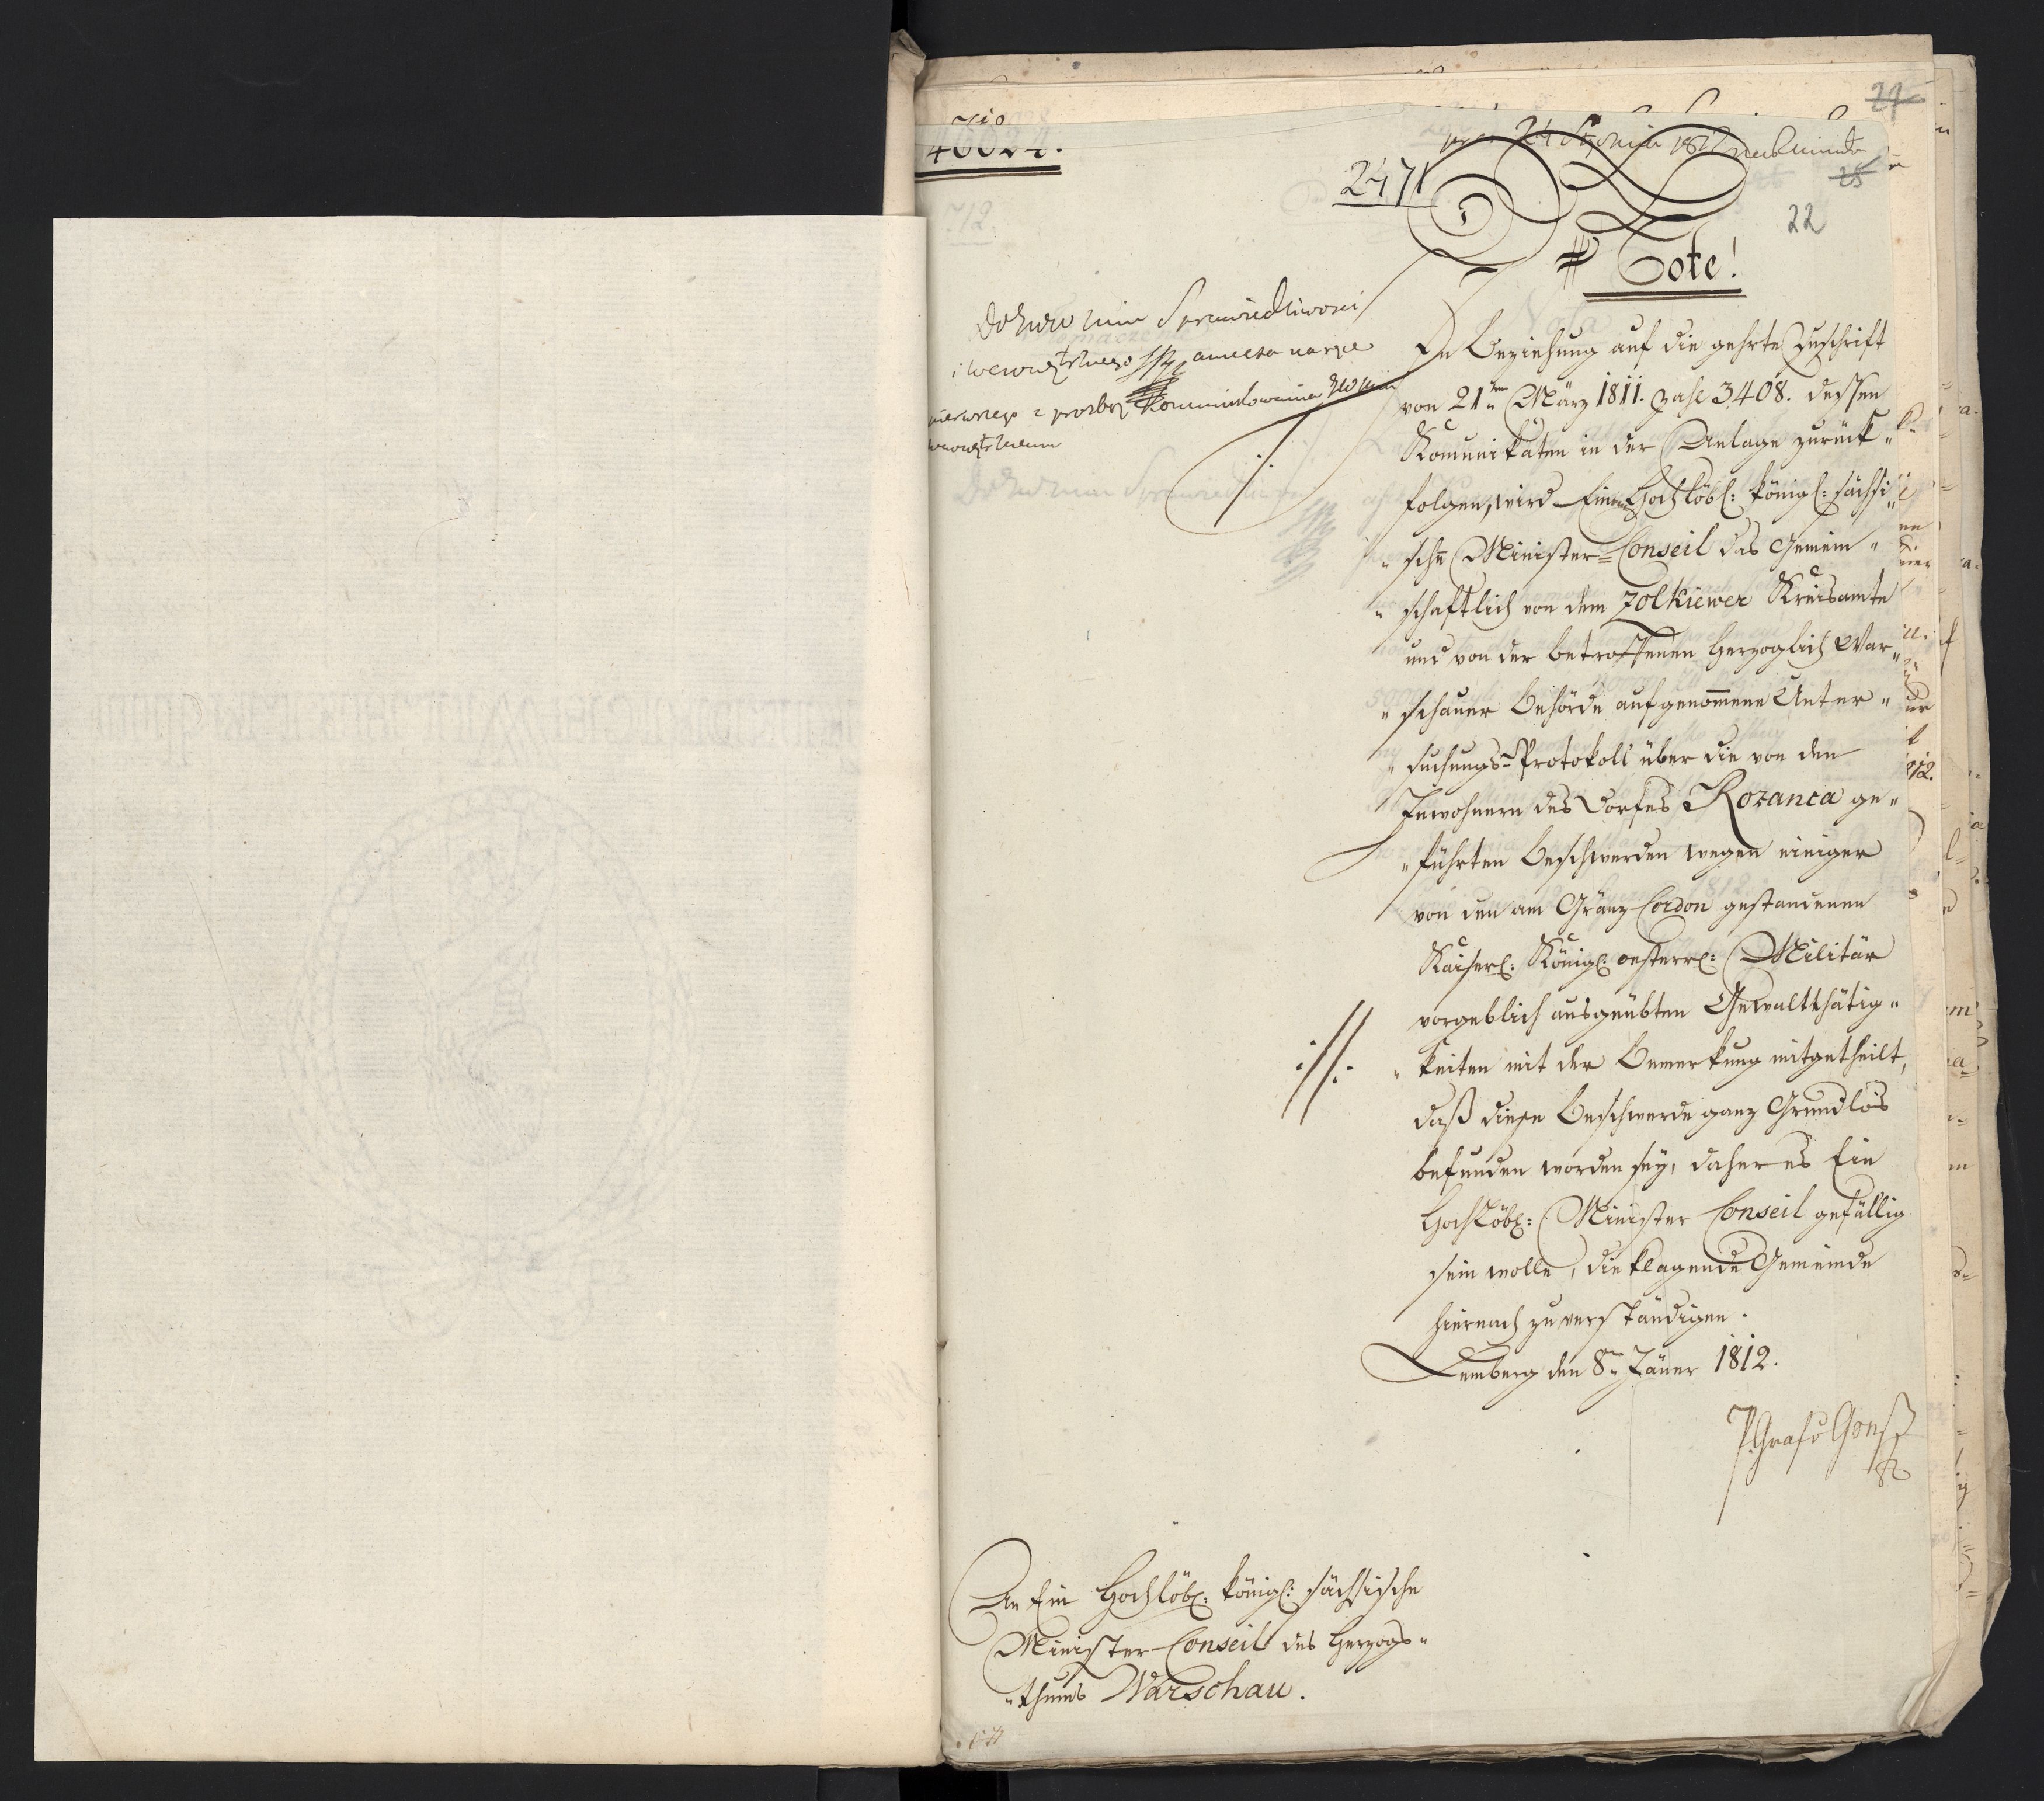 46024.
24
pr. 24 Stycznia 1812
25
2471
22
Note!
Do Rad Min Sprawiedliwosci
i wewnętrznego
pierwszego z prosbą
wewnętrznemu
In Beziehung auf die geehrte Zuschrift
von 21ten März 1811. Zahl 3408. dessen
Komunikaten in der Anlage zurück„
folgen, wird Einem Hochlöbl: königl: sächsi„
„schen Minister=Conseil das gemein„
„schaftlich von dem Zolkiewer Kreisamte
und von der betroffenen herzoglich War„
„schauer Behörde aufgenommene Unter„
„suchungs=Protokoll über die von den
Inwohnern des Dorfes Rozanca ge„
„führten Beschwerden wegen einiger
von den am Gränz-Cordon gestandenen
Kaiserl: Königl: oesterr: Militär
vorgeblich ausgeübten Gewaltthätig„
„keiten mit der Bemerkung mitgetheilt,
daß diese Beschwerde ganz Grundlos
befunden worden sey, daher es Ein
Hochlöbl: Minister Conseil gefällig
sein wolle, die klagende Gemeinde
hiernach zu verständigen.
Lemberg den 8ten Jäner 1812.
P. Graf v Goëß
An Ein Hochlöbl: königl: sächsische
Minister-Conseil des Herzogs„
„thums Warschau.